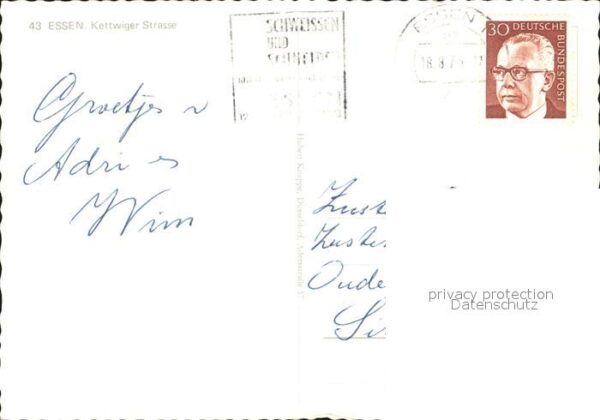 43 ESSEN. Kettwiger Strasse
SCHWEISSEN
UND
SCHNEIDEN
ESSEN
18.8.7
30 DEUTSCHE
BUNDESPOST
Groetjes v
Adri en
Wim
Zust
Zuste
Oude
Si
privacy protection
Datenschutz